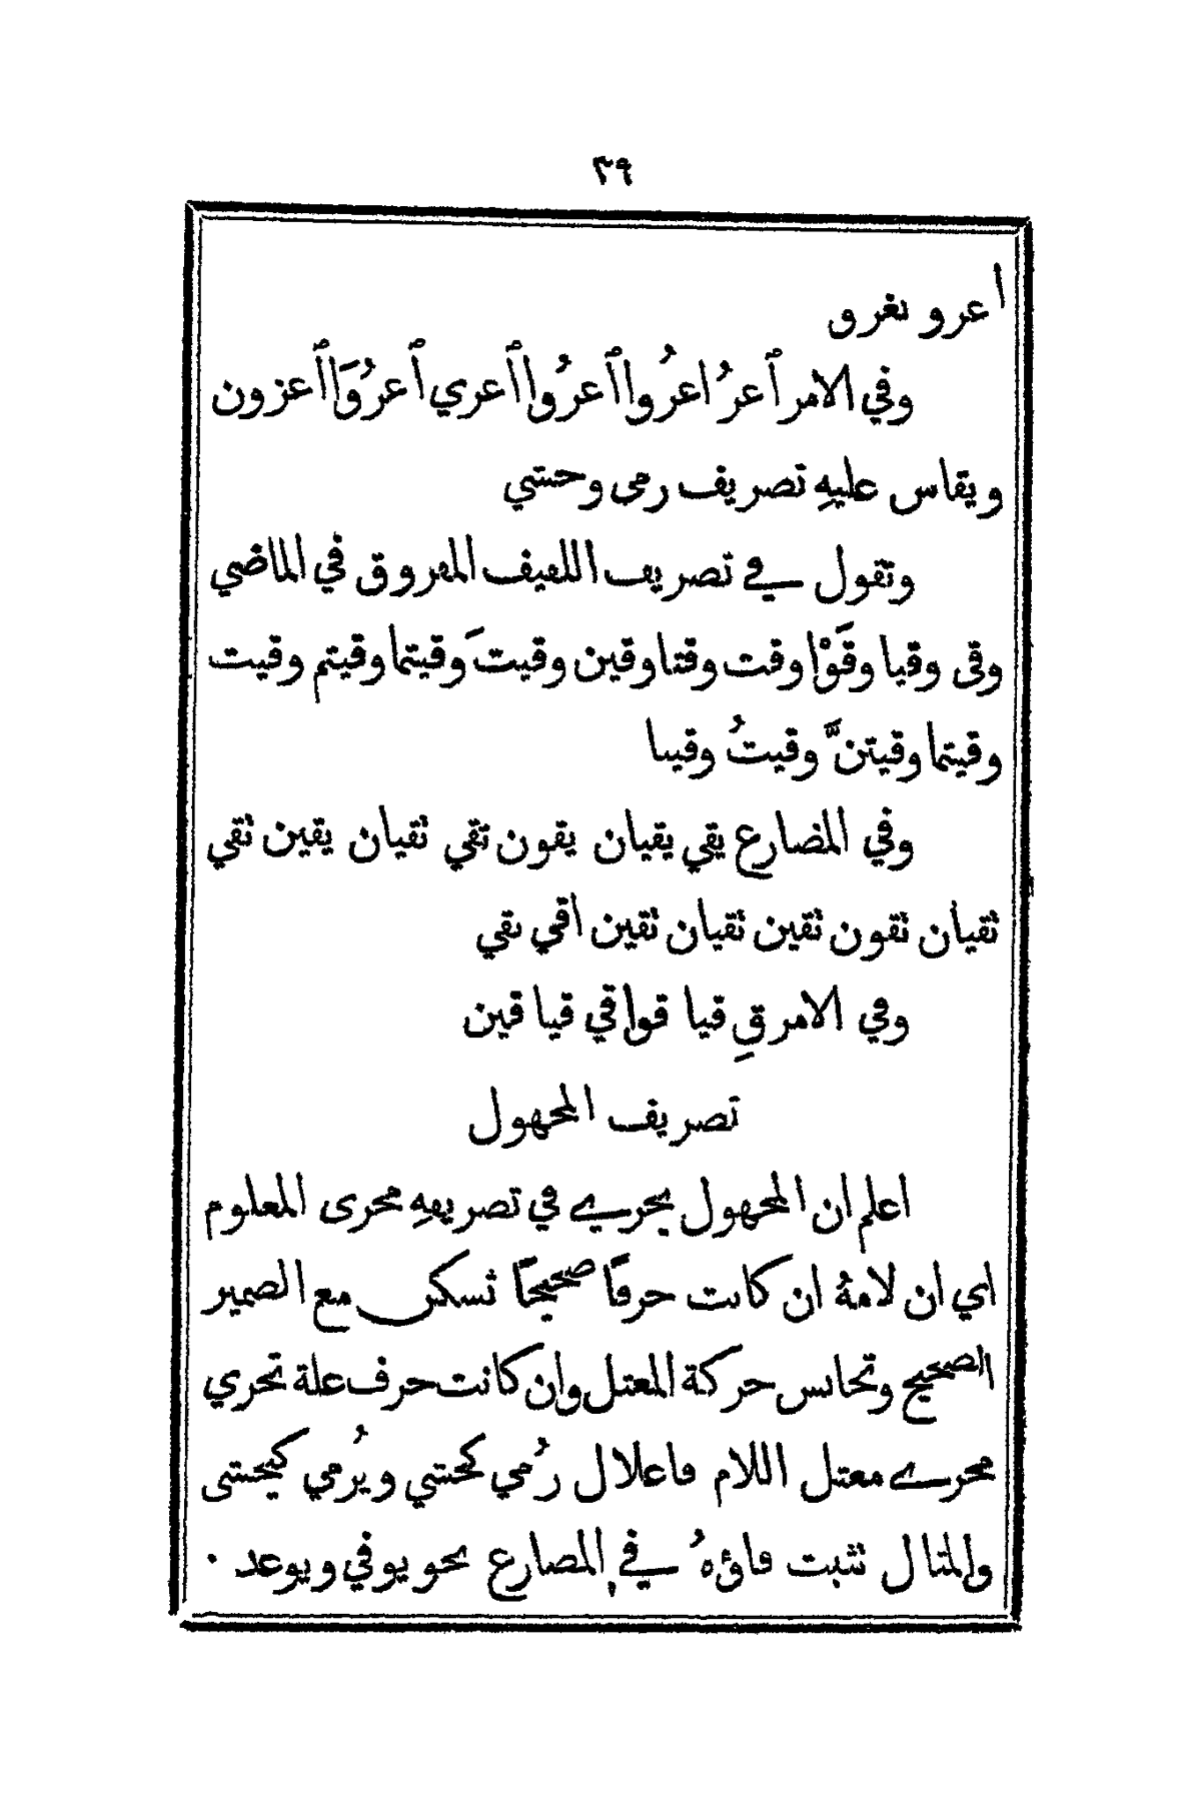 ٣٩
اغزو نغزو
وفي الامر ٱغزُ اغزُوا ٱغزُوا ٱغزي ٱغزُوَا ٱغزون
ويقاس عليهِ تصريف رمى وخشي
وتقول في تصريف اللفيف المفروق في الماضي
وقى وقيا وقَوْا وقت وقتا وقين وقيتَ وقيتما وقيتم وقيت
وقيتما وقيتنَّ وقيتُ وقينا
وفي المضارع يقي يقيان يقون تقي تقيان يقين تقي
تقيان تقون تقين تقيان تقين اقي نقي
وفي الامر قِ قيا قوا قي قيا قين
تصريف المجهول
اعلم ان المجهول يجري في تصريفهِ مجرى المعلوم
اي ان لامهُ ان كانت حرفًا صحيحًا تسكن مع الضمير
الصحيح وتجانس حركة المعتل وان كانت حرف علة تجري
مجرى معتل اللام فاعلال رُمي كخشي ويُرمي كيخشى
والمثال تثبت فاؤهُ في المضارع نحو يوفي ويوعد ٠